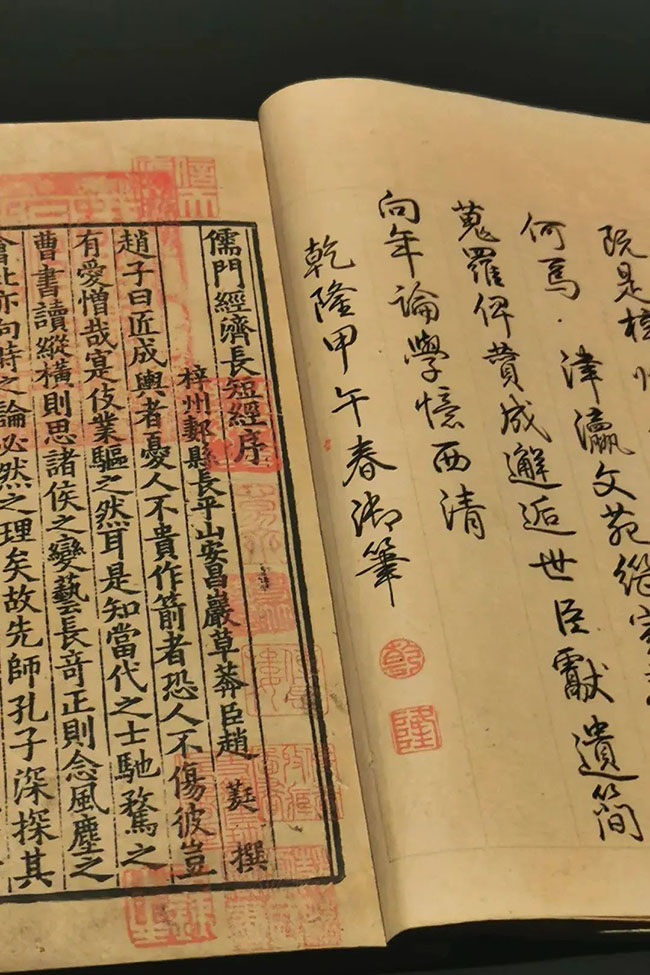 何焉津瀛文苑
蒐羅俾費成邂逅世臣獻遺簡
向年論學憶西清
乾隆甲午春御筆
乾
隆
儒門經濟長短經序
梓州郪縣長平山安昌巖草莽臣趙 蕤 撰
趙子曰匠成輿者憂人不貴作箭者恐人不傷彼豈
有愛憎哉寔伎業驅之然耳是知當代之士馳騖之
曹書讀縱橫則思諸侯之變藝長竒正則念風塵之
會此亦向時之論必然之理矣故先師孔子深探其